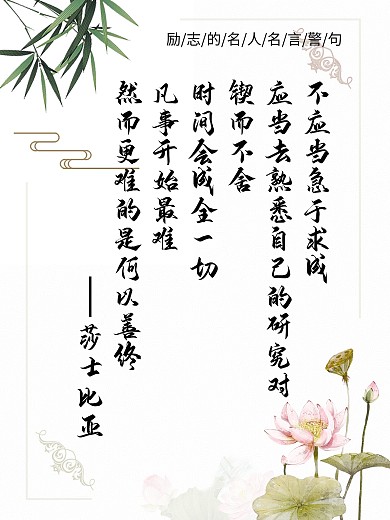 励/志/的/名/人/名/言/警/句
不应当急于求成
应当去熟悉自己的研究对
锲而不舍
时间会成全一切
凡事开始最难
然而更难的是何以善终
——莎士比亚